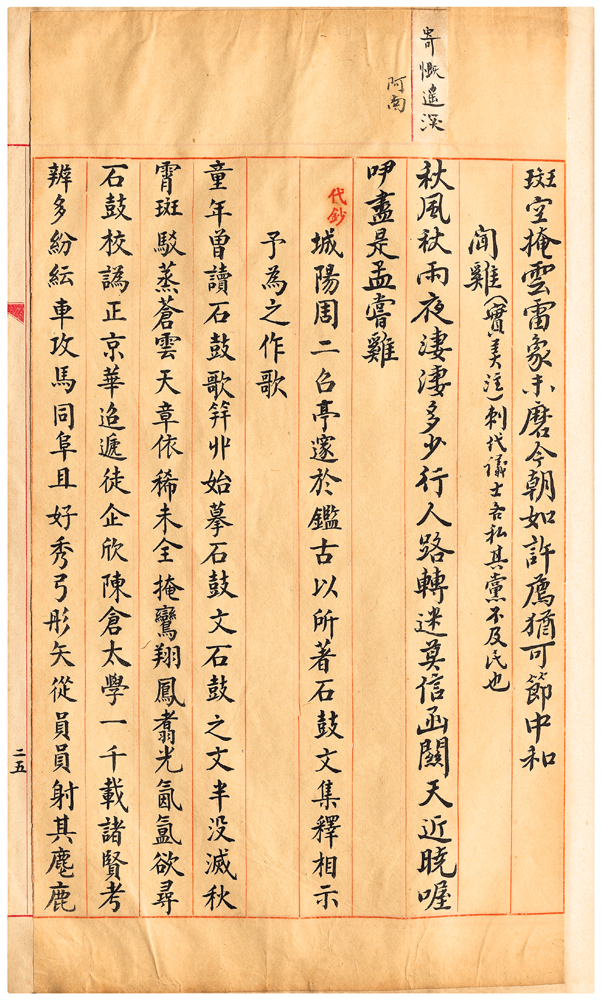 寄慨遙深
阿南
斑空掩雲雷象未磨今朝如許薦猶可節中和
聞雞(實美注)刺代議士各私其黨不及民也
秋風秋雨夜淒淒多少行人路轉迷莫信函關天近曉喔
咿盡是孟嘗雞
代鈔
城陽周二召亭邃於鑑古以所著石鼓文集釋相示
予為之作歌
童年曾讀石鼓歌筓丱始摹石鼓文石鼓之文半没滅秋
霄斑駁蒸蒼雲天章依稀未全掩鸞翔鳳翥光氤氳欲尋
石鼓校譌正京華迢遞徒企欣陳倉太學一千載諸賢考
辨多紛紜車攻馬同阜且好秀弓彤矢從員員射其麀鹿
二五